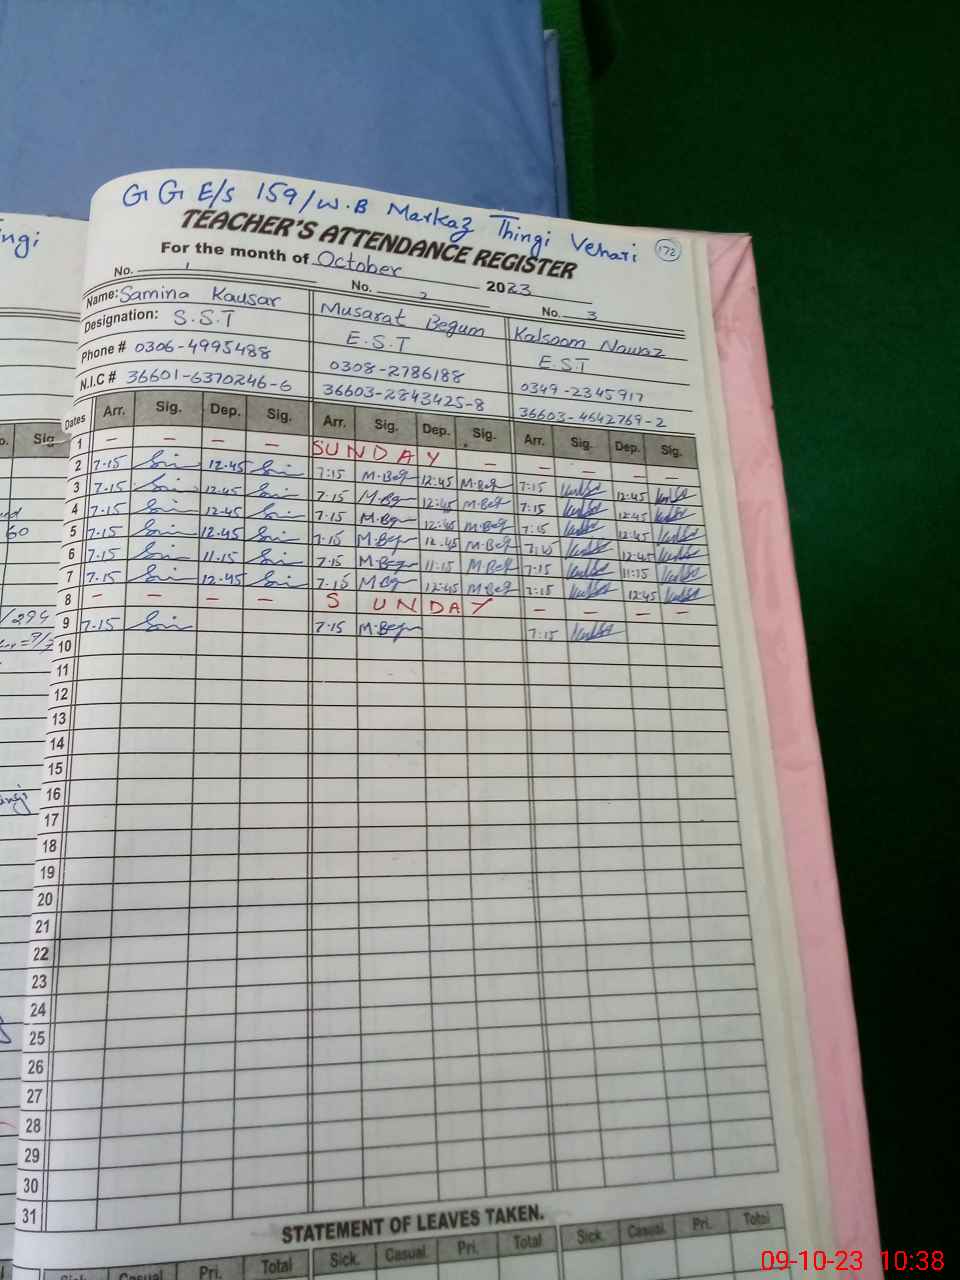 G G E/S 159/W.B Markaz Thingi Vehari 172
TEACHER'S ATTENDANCE REGISTER
For the month of October 2023
No. 1 No. 2 No. 3
Name: Samina Kausar Musarat Begum Kalsoom Nawaz
Designation: S.S.T E.S.T E.S.T
Phone # 0306-4995488 0308-2786188 0349-2345917
N.I.C # 36601-6370246-6 36603-2843425-8 36603-4642769-2
Dates Arr. Sig. Dep. Sig. Arr. Sig. Dep. Sig. Arr. Sig. Dep. Sig.
1 – – – – SUNDAY – – – – –
2 7.15 12.45 7:15 M.Beg 12:45 M.Beg 7:15 12:45
3 7.15 12.45 7.15 M.Beg 12:45 M.Beg 7:15 12:45
4 7.15 12.45 7.15 M.Beg 12:45 M.Beg 7:15 12:45
5 7.15 12.45 7.15 M.Beg 12.45 M.Beg 7:15 12:45
6 7.15 11.15 7.15 M.Beg 11:15 M.Beg 7:15 11:15
7 7.15 12.45 7.15 M.Beg 12:45 M.Beg 7:15 12:45
8 – – – – SUNDAY – – – –
9 7.15 7.15 M.Beg 7:15
10
11
12
13
14
15
16
17
18
19
20
21
22
23
24
25
26
27
28
29
30
31
STATEMENT OF LEAVES TAKEN.
Sick. Casual Pri. Total Sick. Casual. Pri. Total Sick. Casual. Pri. Total
09-10-23 10:38